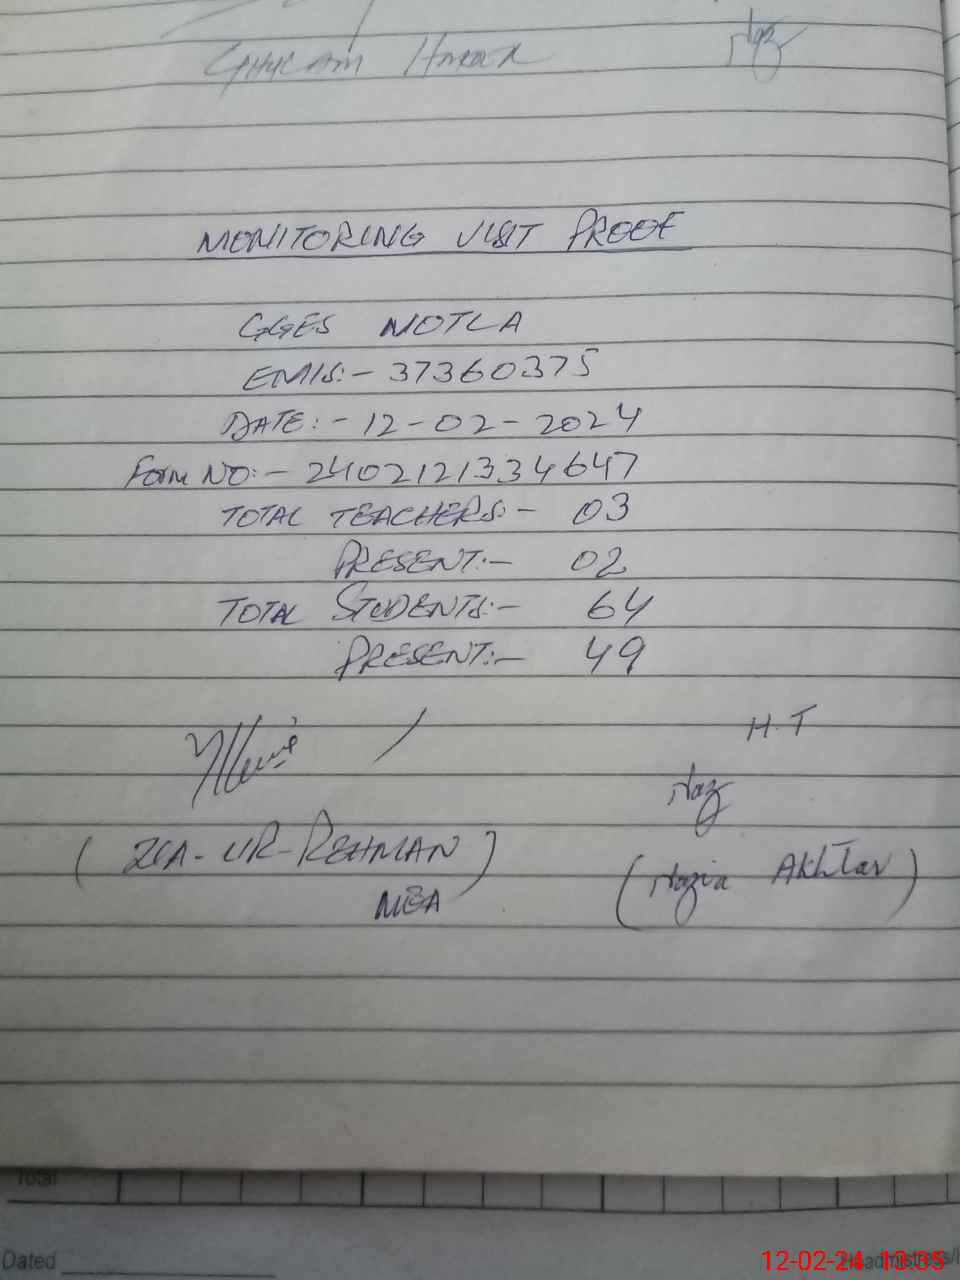 MONITORING VISIT PROOF
GGES MOTLA
EMIS:- 37360375
DATE:- 12-02-2024
Form NO:- 2402121334647
TOTAL TEACHERS:- 03
PRESENT:- 02
TOTAL STUDENTS:- 64
PRESENT:- 49
H.T
Naz
(ZIA-UR-REHMAN)
(Nazia Akhtar)
MEA
Total
Dated
12-02-24 13:35